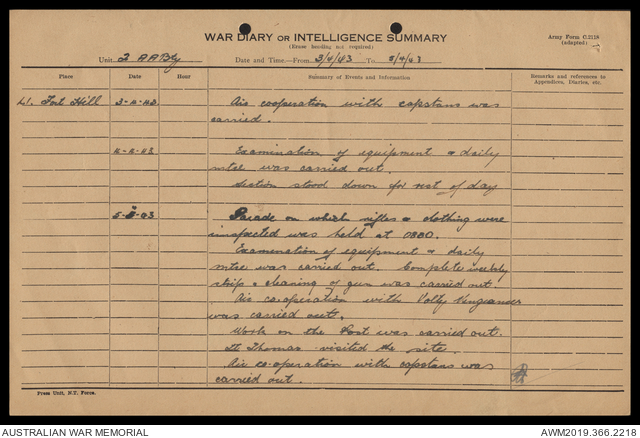 WAR DIARY OR INTELLIGENCE SUMMARY
(Erase heading not required)
Army Form C.2118
(adapted)
Unit 2 AABty Date and Time.—From 3/4/43 To 5/4/43
Place Date Hour Summary of Events and Information Remarks and references to
Appendices, Diaries, etc.
Fort Hill 3-4-43 Air cooperation with capstans was
carried.
4-4-43 Examination of equipment & daily
mtce was carried out.
Section stood down for rest of day
5-4-43 Parade on which rifles & clothing were
inspected was held at 0800.
Examenation of equipment & daily
mtce was carried out. Complete weekly
strip & cleaning of gun was carried out.
Air co-operation with Vultee
was carried out.
Work on the Post was carried out.
Lt Thomas visited the site.
Air co-operation with capstans was
carried out.
Press Unit, N.T. Force.
AUSTRALIAN WAR MEMORIAL
AWM2019.366.2218